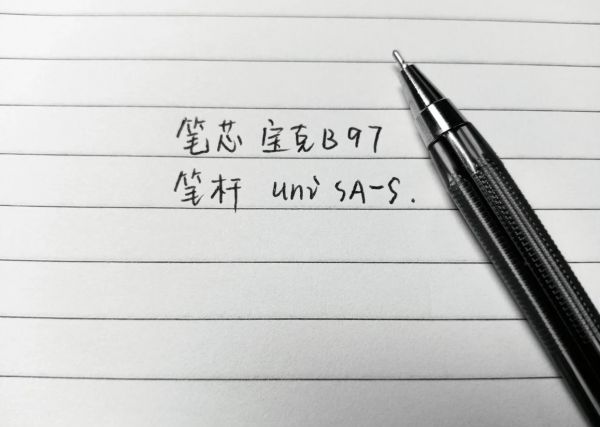 笔芯 宝克B97
笔杆 uni SA-S.